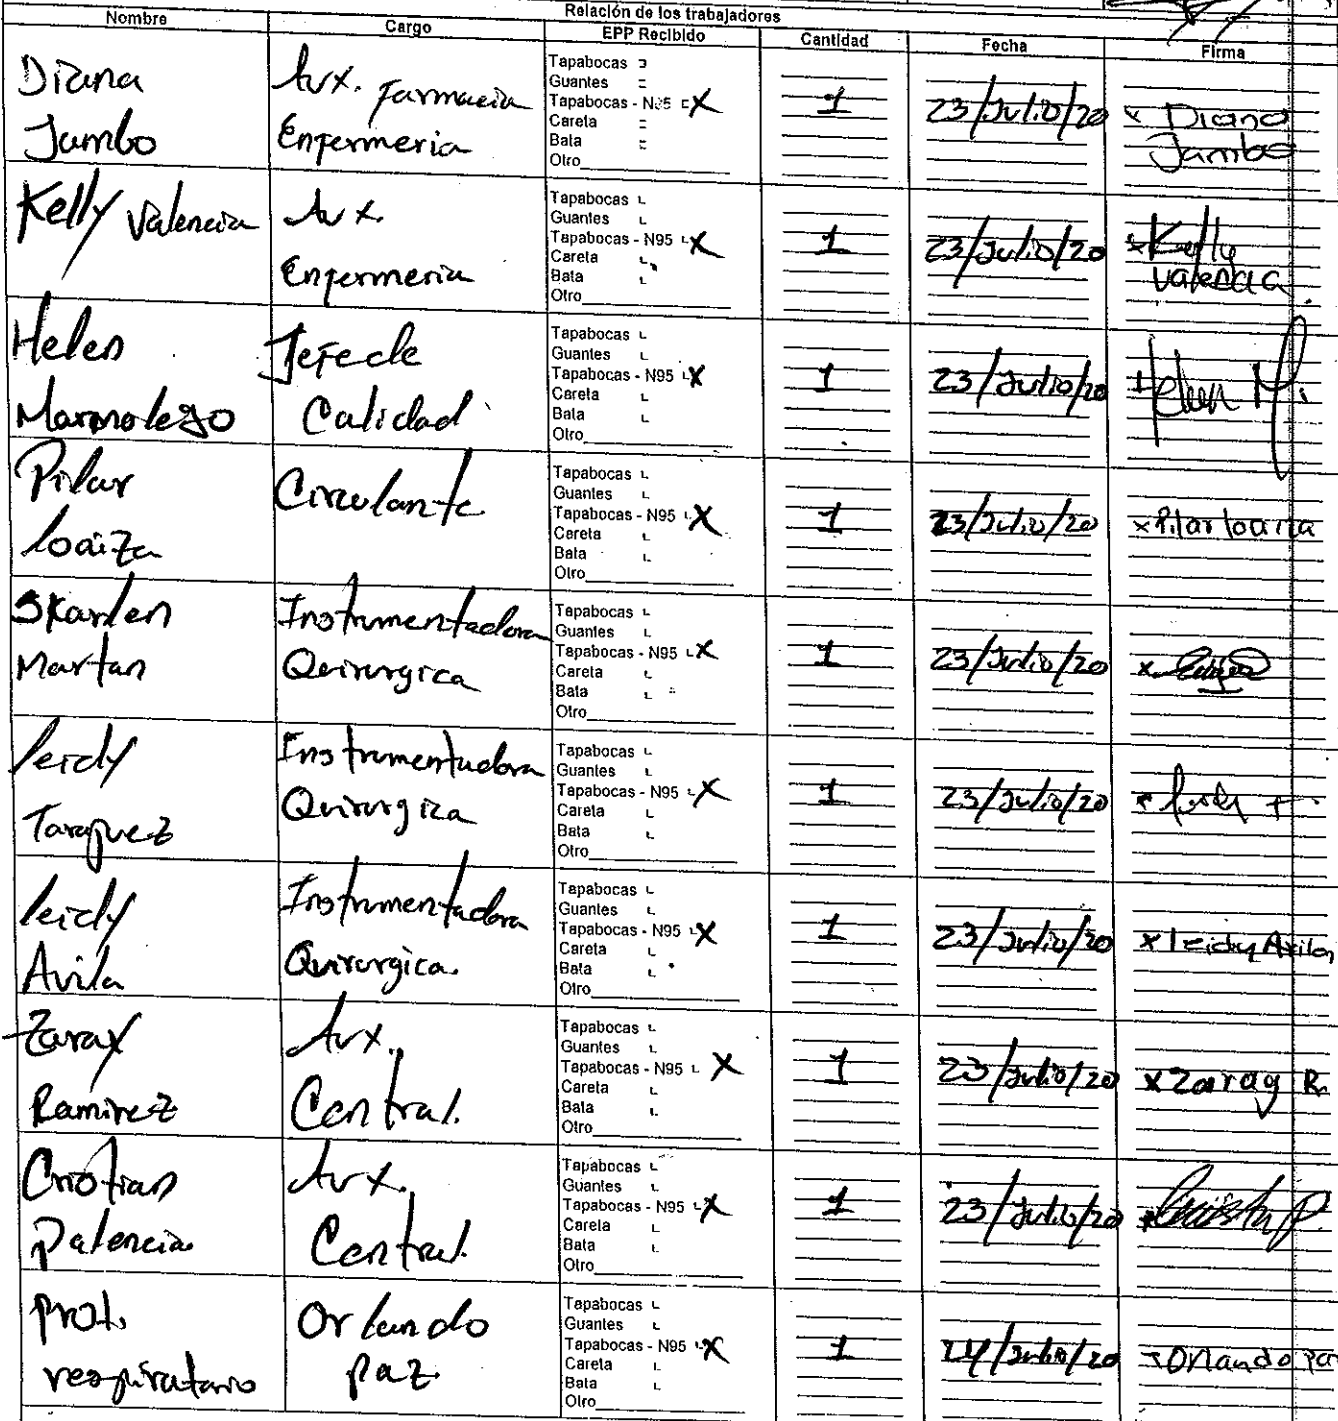 Relación de los trabajadores
Nombre Cargo EPP Recibido Cantidad Fecha Firma
Diana Jambo
Aux. Farmacia
Enfermeria
Tapabocas
Guantes
Tapabocas - N95 X
Careta
Bata
Otro
1
23/Julio/20
x Diana
Jambo
Kelly Valencia
Aux.
Enfermeria
Tapabocas
Guantes
Tapabocas - N95 X
Careta
Bata
Otro
1
23/Julio/20
x Kelly
Valencia.
Helen
Marmolego
Jefe de
Calidad
Tapabocas
Guantes
Tapabocas - N95 X
Careta
Bata
Otro
1
23/Julio/20
Helen M.
Pilar
loaiza
Circulante
Tapabocas
Guantes
Tapabocas - N95 X
Careta
Bata
Otro
1
23/Julio/20
x Pilar loaiza
Skarlen
Martan
Instrumentadora
Quirurgica
Tapabocas
Guantes
Tapabocas - N95 X
Careta
Bata
Otro
1
23/Julio/20
x
leidy
Tarapuez
Instrumentadora
Quirurgica
Tapabocas
Guantes
Tapabocas - N95 X
Careta
Bata
Otro
1
23/Julio/20
x leidy T.
leidy
Avila
Instrumentadora
Quirurgica.
Tapabocas
Guantes
Tapabocas - N95 X
Careta
Bata
Otro
1
23/Julio/20
x leidy Avila
Zaray
Ramirez
Aux.
Central.
Tapabocas
Guantes
Tapabocas - N95 X
Careta
Bata
Otro
1
23/Julio/20
x Zaray R.
Cristian
Palencia
Aux.
Central.
Tapabocas
Guantes
Tapabocas - N95 X
Careta
Bata
Otro
1
23/Julio/20
Prot.
respiratorio
Orlando
Paz.
Tapabocas
Guantes
Tapabocas - N95 X
Careta
Bata
Otro
1
24/Julio/20
x Orlando Pa